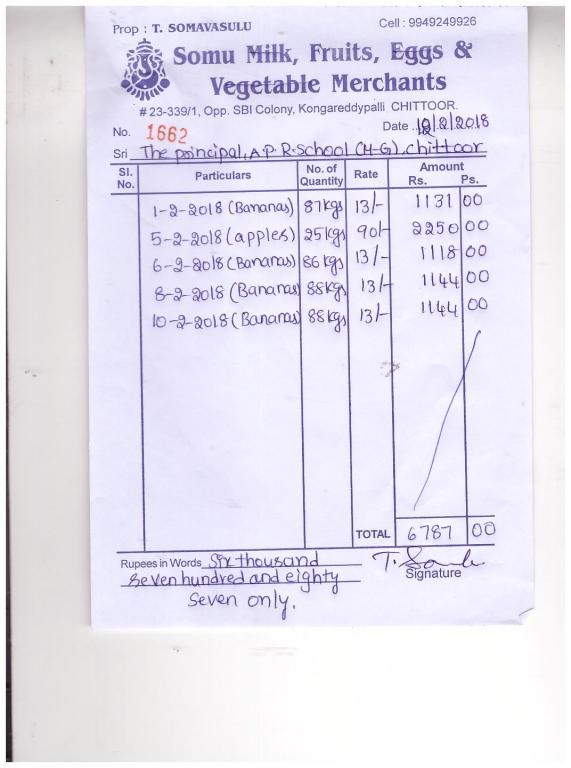 Prop : T. SOMAVASULU Cell : 9949249926
Somu Milk, Fruits, Eggs &
Vegetable Merchants
# 23-339/1, Opp. SBI Colony, Kongareddypalli CHITTOOR.
No. 1662 Date . 12/2/2018
Sri The principal, A.P.R.School (H-G), Chittoor
Sl. No. Particulars No. of Quantity Rate Amount Rs. Ps.
1-2-2018 (Bananas) 87kgs 13/- 1131 00
5-2-2018 (apples) 25kgs 90/- 2250 00
6-2-2018 (Bananas) 86kgs 13/- 1118 00
8-2-2018 (Bananas) 88kgs 13/- 1144 00
10-2-2018 (Bananas) 88kgs 13/- 1144 00
TOTAL 6787 00
Rupees in Words Six thousand
Seven hundred and eighty
Seven only.
Signature